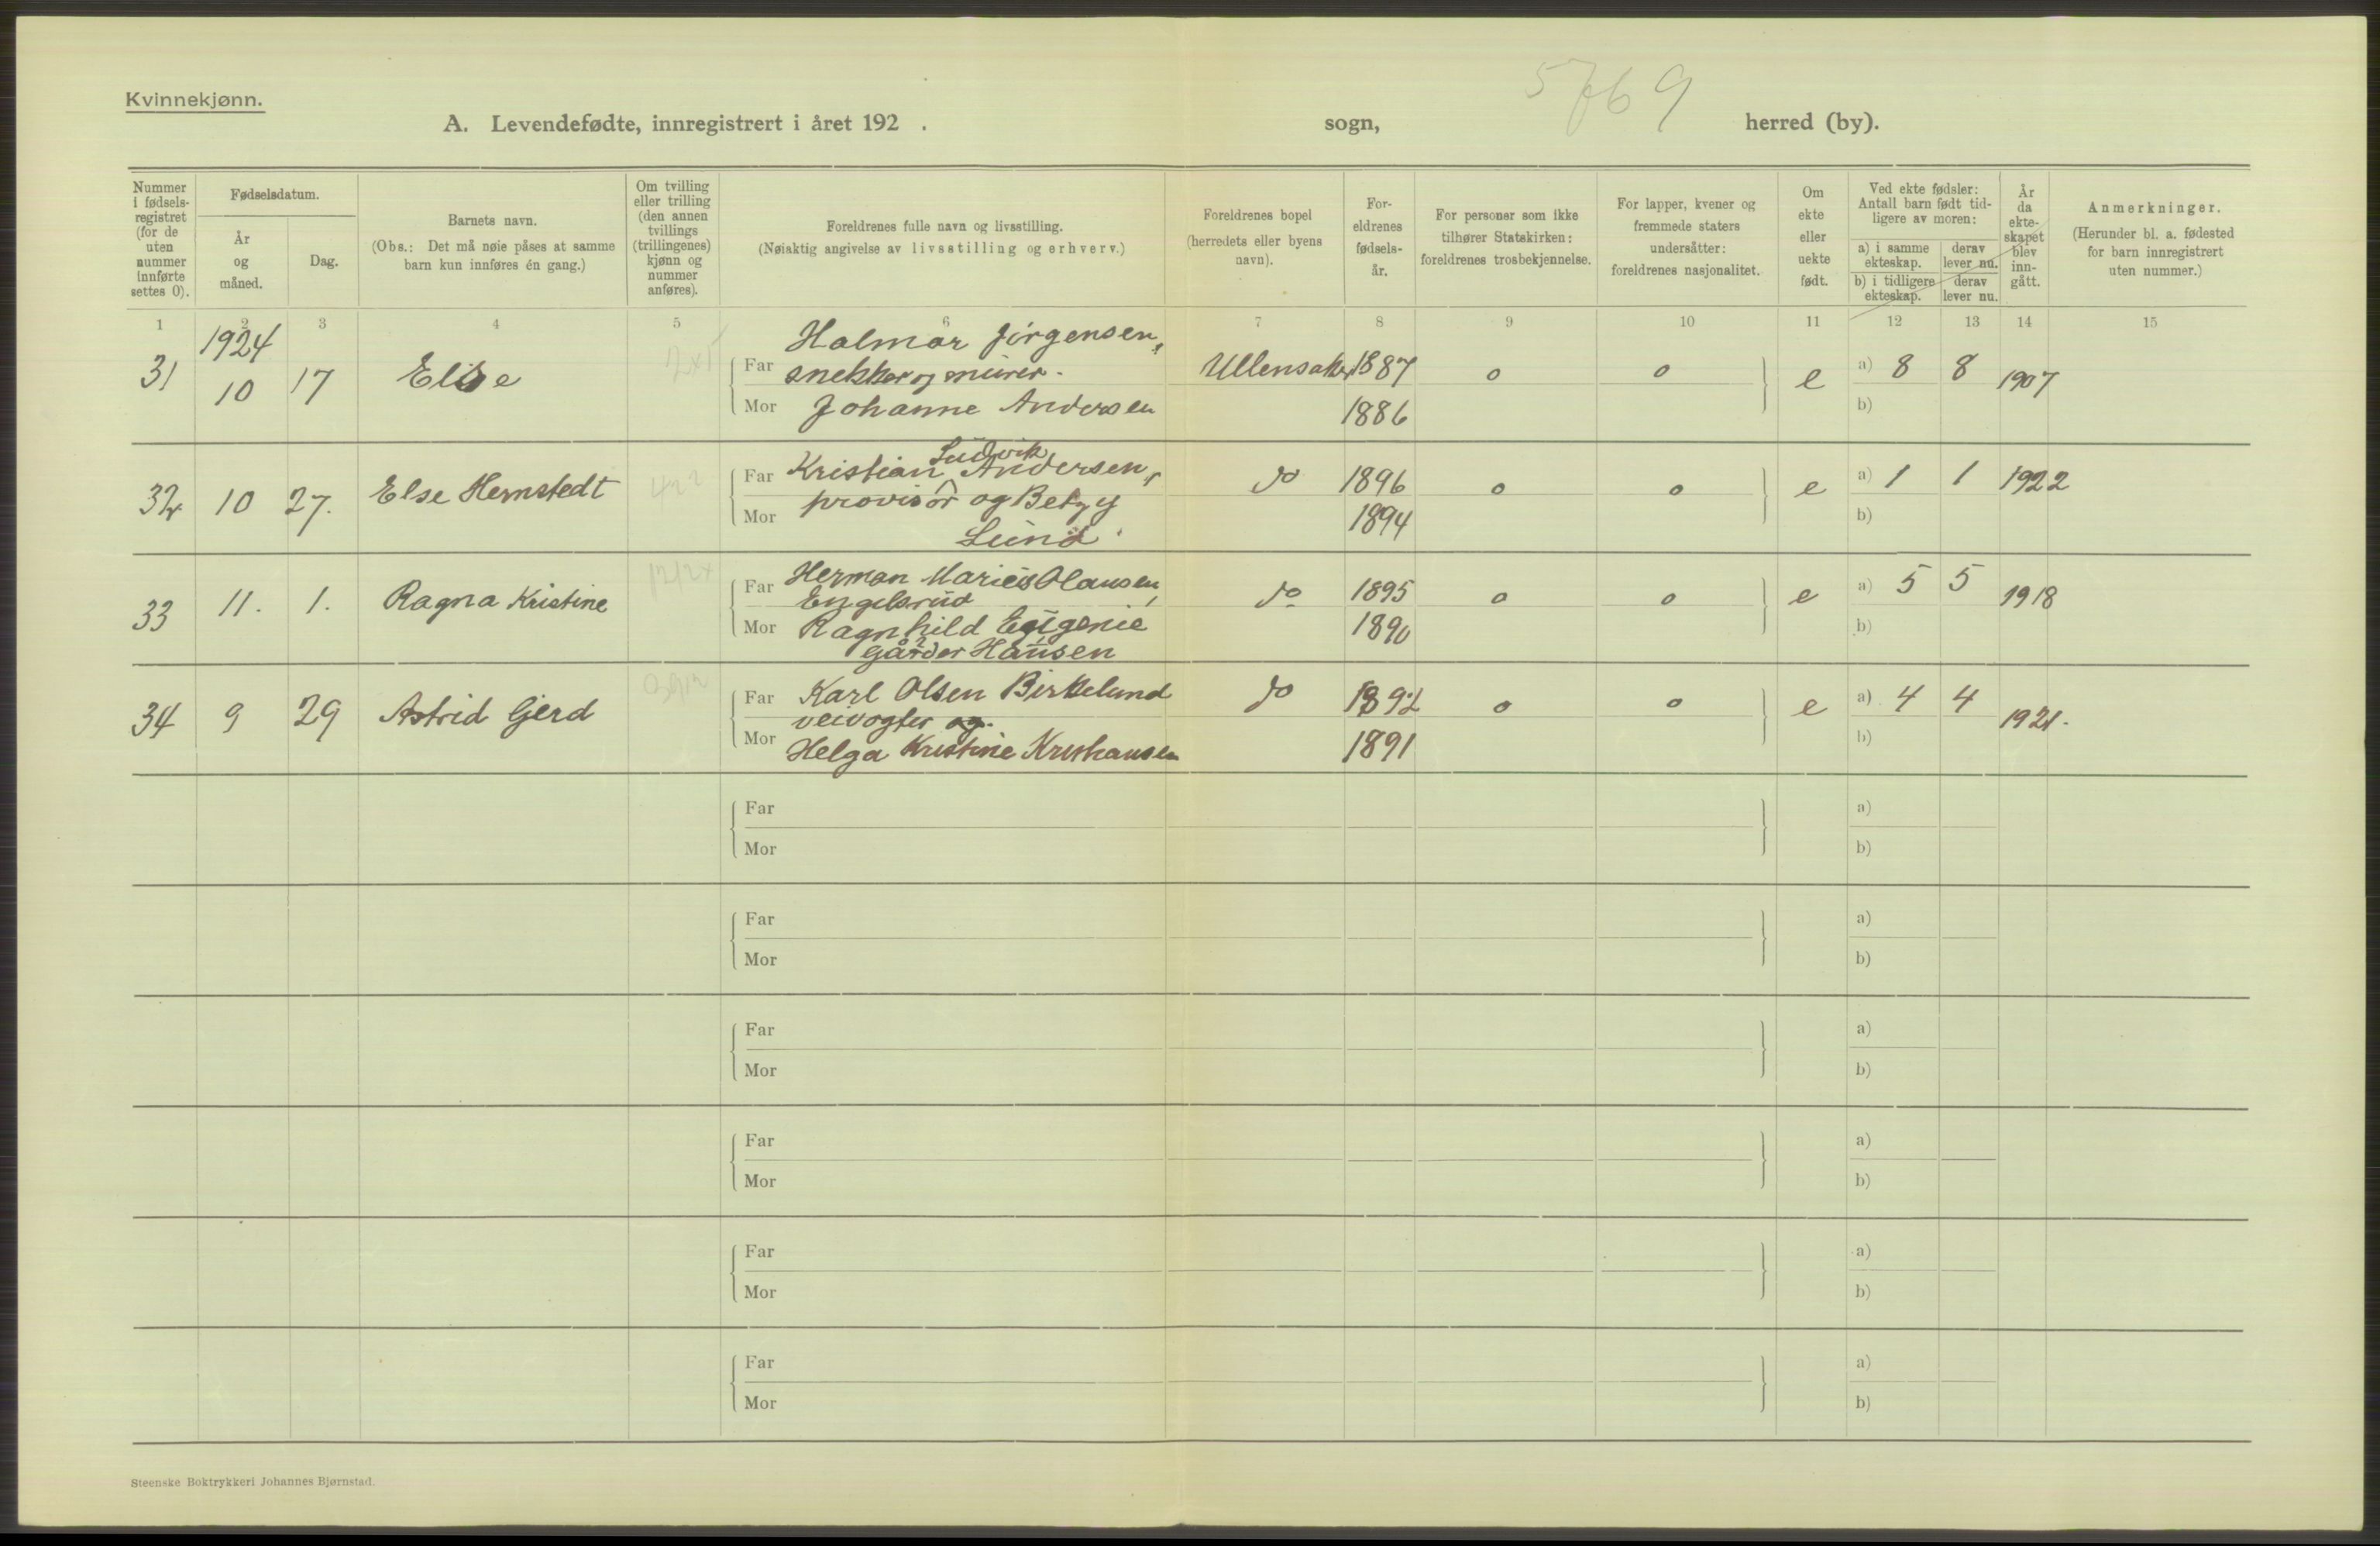 5769
Kvinnekjønn.
A. Levendefødte, innregistrert i året 192 . sogn, herred (by).
Nummer i fødsels-registret (for de uten nummer innførte settes 0).
Fødselsdatum.
År og måned.
Dag.
Barnets navn.
(Obs.: Det må nøie påses at samme barn kun innføres én gang.)
Om tvilling eller trilling (den annen tvillings (trillingenes) kjønn og nummer anføres).
Foreldrenes fulle navn og livsstilling.
(Nøiaktig angivelse av livsstilling og erhverv.)
Foreldrenes bopel (herredets eller byens navn).
For-eldrenes fødsels-år.
For personer som ikke tilhører Statskirken: foreldrenes trosbekjennelse.
For lapper, kvener og fremmede staters undersåtter: foreldrenes nasjonalitet.
Om ekte eller uekte født.
Ved ekte fødsler: Antall barn født tid-ligere av moren:
a) i samme ekteskap. derav lever nu.
b) i tidligere ekteskap. derav lever nu.
År da ekte-skapet blev inn-gått.
Anmerkninger.
(Herunder bl. a. fødested for barn innregistrert uten nummer.)
1 2 3 4 5 6 7 8 9 10 11 12 13 14 15
1924
31 10 17 Elise Far Halmar Jørgensen, Ullensaker 1887 o o e a) 8 8 1907
snekker og murer.
Mor Johanne Andersen 1886 b)
Ludvik
32 10 27. Else Hernstedt 422 Far Kristian Andersen, do 1896 o o e a) 1 1 1922
Mor provisor og Betzy 1894 b)
Lund.
33 11. 1. Ragna Kristine Far Herman Marius Olausen do 1895 o o e a) 5 5 1918
Engelsrud,
Mor Ragnhild Eugenie 1890 b)
Garder Hansen
34 9 29 Astrid Gjerd Far Karl Olsen Birkelund do 1892 o o e a) 4 4 1921.
veivogter og.
Mor Helga Kristine Kristiansen 1891 b)
Far a)
Mor b)
Far a)
Mor b)
Far a)
Mor b)
Far a)
Mor b)
Far a)
Mor b)
Far a)
Mor b)
Steenske Boktrykkeri Johannes Bjørnstad.